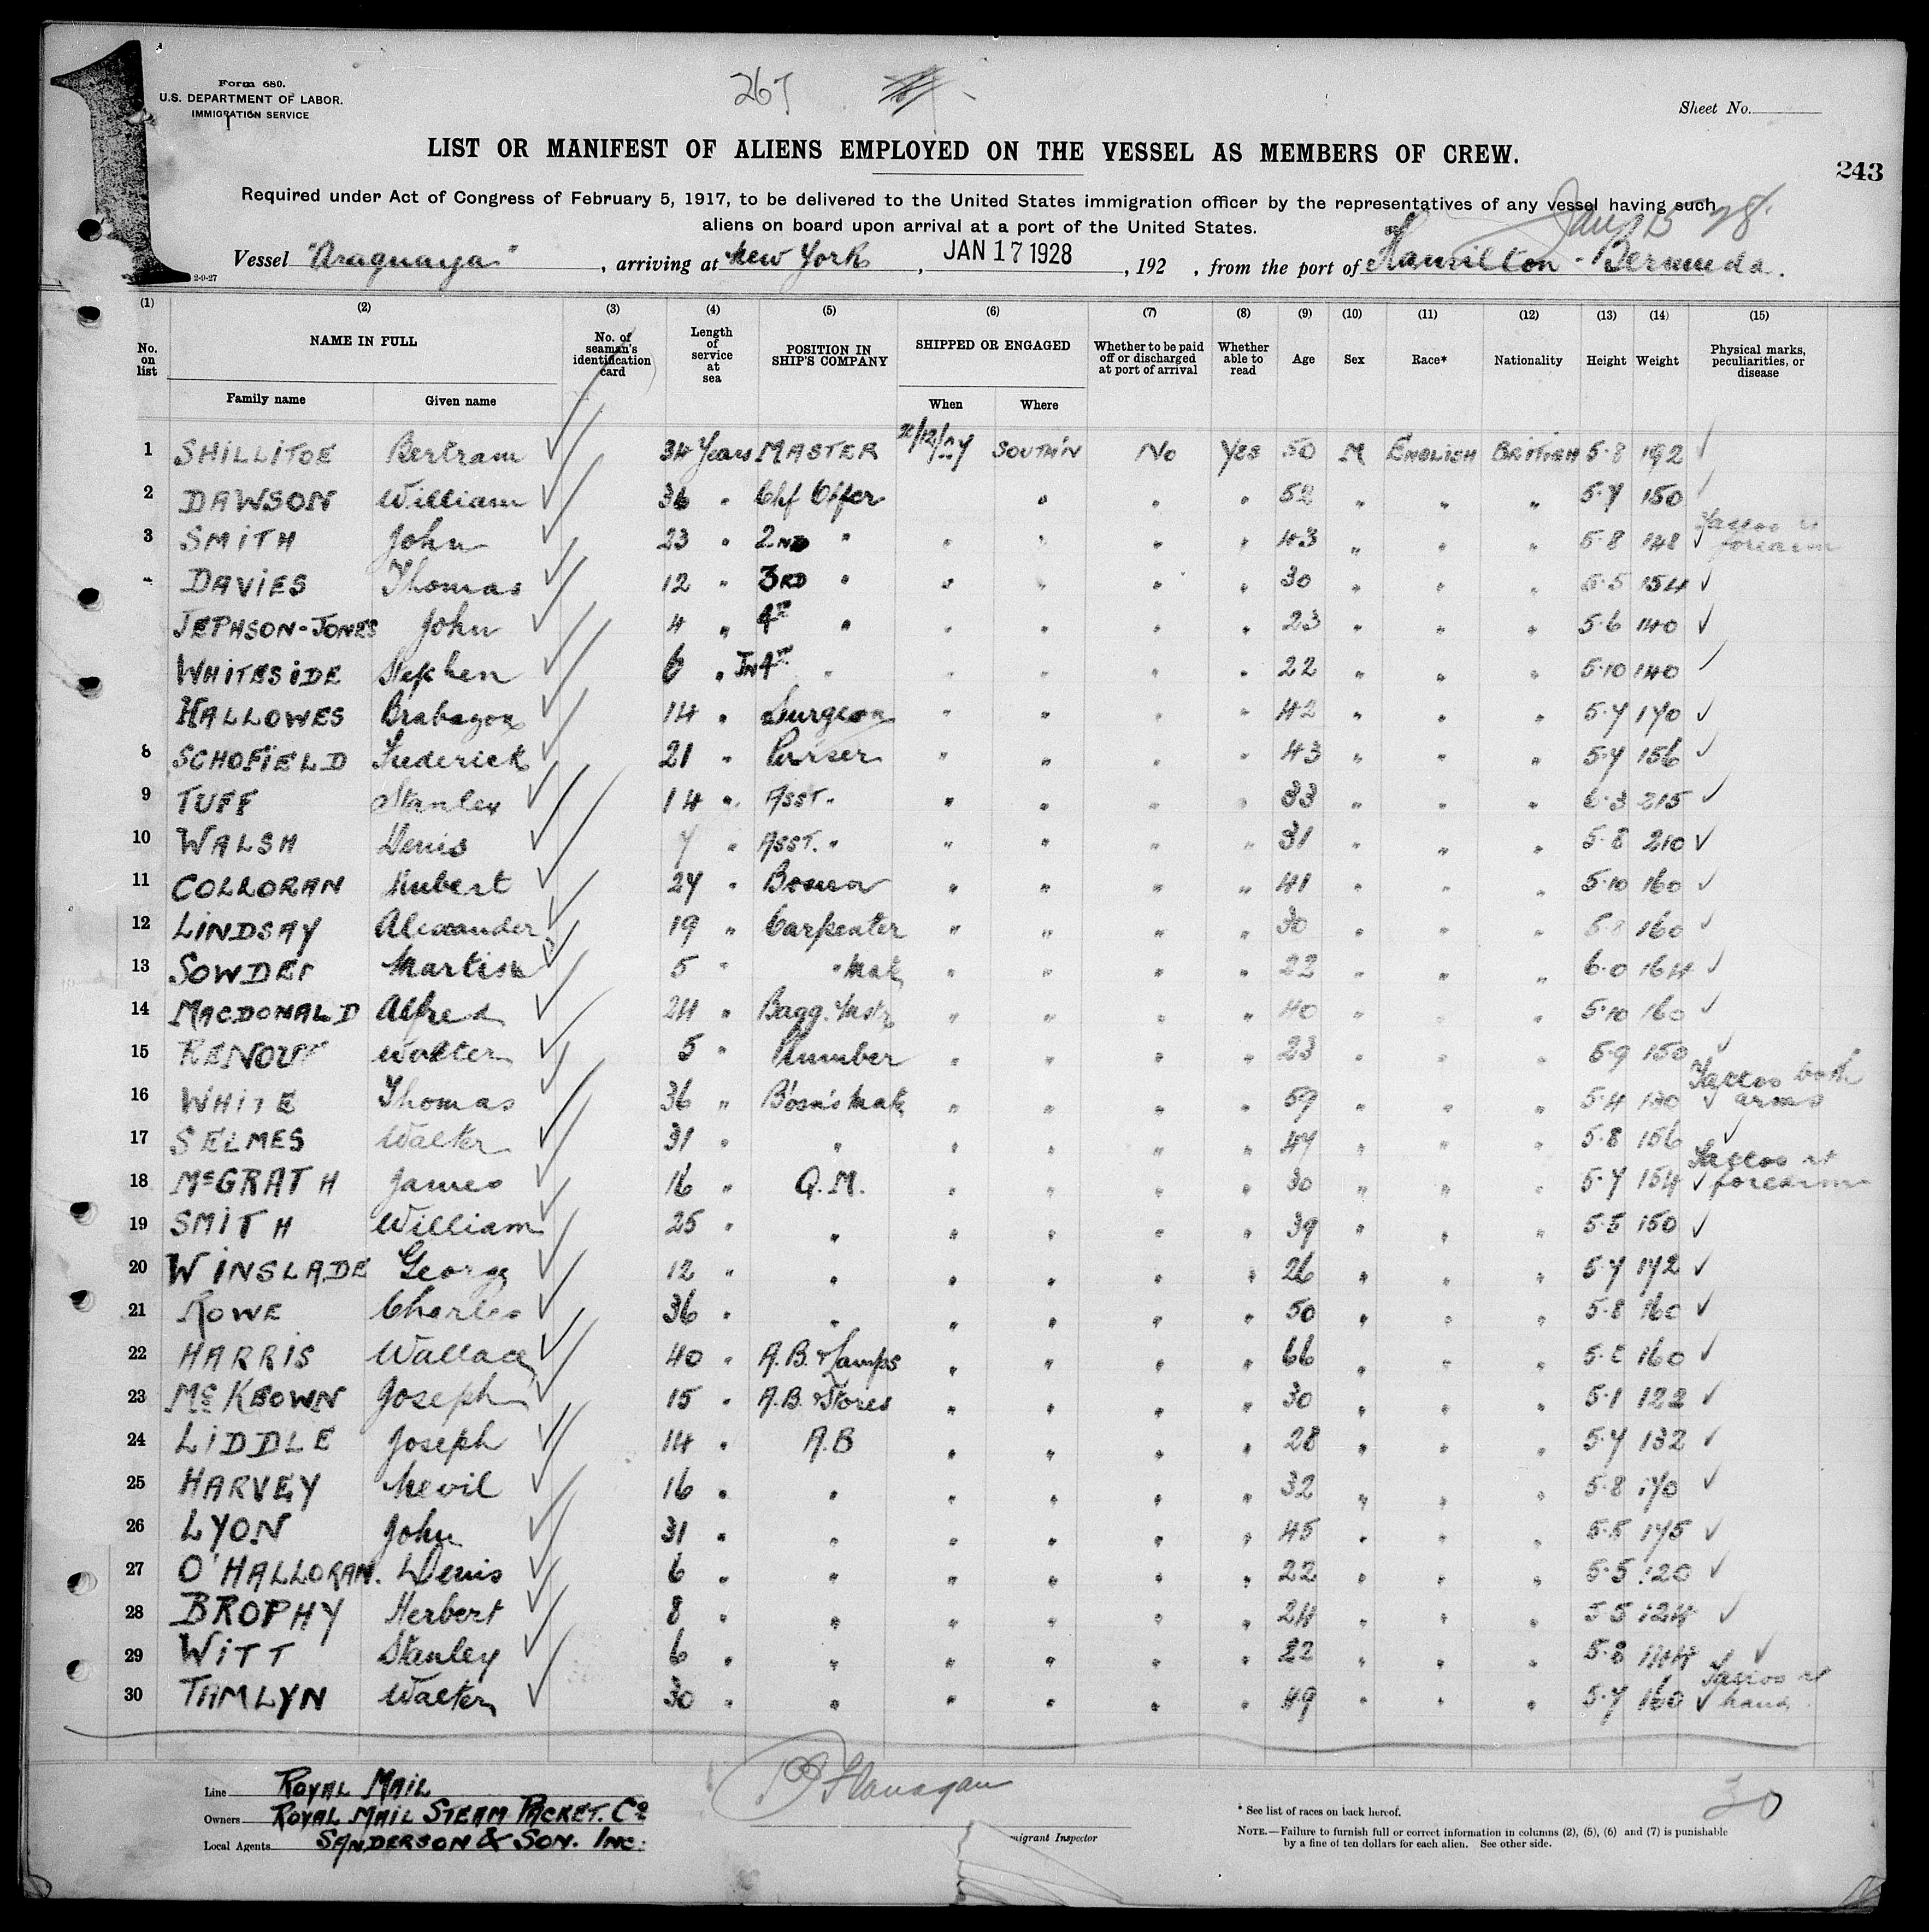 Form 680.
U.S. DEPARTMENT OF LABOR.
IMMIGRATION SERVICE
267
Sheet No.
LIST OR MANIFEST OF ALIENS EMPLOYED ON THE VESSEL AS MEMBERS OF CREW.
243
Required under Act of Congress of February 5, 1917, to be delivered to the United States immigration officer by the representatives of any vessel having such
aliens on board upon arrival at a port of the United States.
Jany 15 28
Vessel "Araguaya", arriving at New York, JAN 17 1928, 192 , from the port of Hamilton - Bermuda.
2-9-27
(1) (2) (3) (4) (5) (6) (7) (8) (9) (10) (11) (12) (13) (14) (15)
No. on list NAME IN FULL No. of seaman's identification card Length of service at sea POSITION IN SHIP'S COMPANY SHIPPED OR ENGAGED Whether to be paid off or discharged at port of arrival Whether able to read Age Sex Race* Nationality Height Weight Physical marks, peculiarities, or disease
Family name Given name When Where
1 SHILLITOE Bertram 34 Years MASTER SOUTH'N No Yes 50 M ENGLISH BRITISH 5·8 192
2 DAWSON William 36 " Chf Offer " " " 52 " " " 5·7 150
3 SMITH John 23 " 2ND " " " " " 43 " " " 5·8 148 Tattoo rt forearm
DAVIES Thomas 12 " 3RD " " " " " 30 " " " 5·5 154
JEPHSON-JONES John 4 " 4TH " " " " " 23 " " " 5·6 140
WHITESIDE Stephen 6 " JN 4TH " " " " " 22 " " " 5·10 140
HALLOWES Brabazon 14 " Surgeon " " " " 42 " " " 5·7 170
8 SCHOFIELD Frederick 21 " Purser " " " " 43 " " " 5·7 156
9 TUFF Stanley 14 " ASST. " " " " " 33 " " " 6·3 215
10 WALSH Denis 7 " ASST. " " " " " 31 " " " 5·8 210
11 COLLORAN Hubert 27 " Bosun " " " " 41 " " " 5·10 160
12 LINDSAY Alexander 19 " Carpenter " " " " 30 " " " 5·8 160
13 SOWDEN Martin 5 " " Mate " " " " 22 " " " 6·0 164
14 MACDONALD Alfred 24 " Bagg. Mstr " " " " 40 " " " 5·10 160
15 RENOUF Walter 5 " Plumber " " " " 23 " " " 5·9 150
16 WHITE Thomas 36 " Bosn's Mate " " " " 59 " " " 5·4 130 Tattoo both arms
17 SELMES Walter 31 " " " " " " 47 " " " 5·8 156
18 McGRATH James 16 " Q.M. " " " " 30 " " " 5·7 154 Tattoo rt forearm
19 SMITH William 25 " " " " " " 39 " " " 5·5 150
20 WINSLADE George 12 " " " " " " 26 " " " 5·7 172
21 ROWE Charles 36 " " " " " " 50 " " " 5·8 160
22 HARRIS Wallace 40 " A.B. & Lamps " " " " 66 " " " 5·8 160
23 McKEOWN Joseph 15 " A.B. & Stores " " " " 30 " " " 5·1 122
24 LIDDLE Joseph 14 " A.B " " " " 28 " " " 5·7 132
25 HARVEY Nevil 16 " " " " " " 32 " " " 5·8 170
26 LYON John 31 " " " " " " 45 " " " 5·5 175
27 O'HALLORAN. Denis 6 " " " " " " 22 " " " 5·5 120
28 BROPHY Herbert 8 " " " " " " 24 " " " 5·5 124
29 WITT Stanley 6 " " " " " " 22 " " " 5·8 144
30 TAMLYN Walter 30 " " " " " " 49 " " " 5·7 160 Tattoo rt hand
Line ROYAL MAIL
Owners ROYAL MAIL STEAM PACKET. Co
Local Agents SANDERSON & SON. INC:
Flanagan
migrant Inspector
* See list of races on back hereof.
NOTE.—Failure to furnish full or correct information in columns (2), (5), (6) and (7) is punishable
by a fine of ten dollars for each alien. See other side.
30